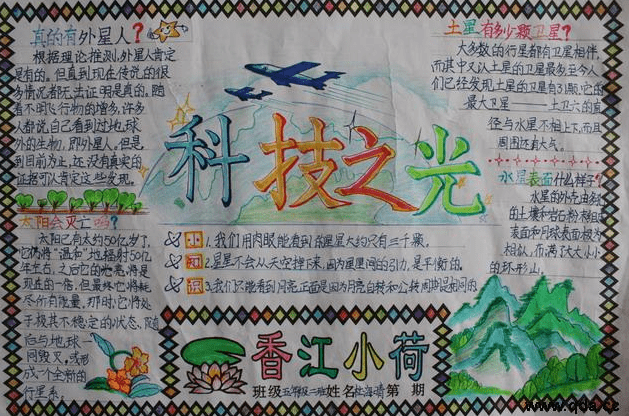 真的有外星人?
根据理论推测,外星人肯定
是有的。但直到现在传说的很
多情况都无法证明是真的。随
着不明飞行物的增多,许多
人都说,自己看到过地球
外的生物,即外星人。但是,
到目前为止,还没有真实的
证据可以肯定这些发现。
太阳会灭亡吗?
太阳已有大约50亿岁了,
它仍将“温和”地辐射50亿
年左右,之后它的光亮,将是
现在的一倍,但最终它将耗
尽所有能量,那时,它将处
于极其不稳定的状态,随
后与地球一
同毁灭,或形
成一个全新的
行星系。
科技之光
小 1.我们用肉眼能看到的星星大约只有三千颗。
知 2.星星不会从天空掉下来,因为星星间的引力,是平衡的。
识 3.我们只能看到月亮正面是因为月亮自转和公转周期是相同的
香江小荷
班级五年级二班姓名杜海清第 期
土星有多少颗卫星?
大多数的行星都有卫星相伴,
而其中又以土星的卫星最多至今人
们已经发现土星的卫星有31颗,它的
最大卫星——土卫六的直
径与水星不相上下,而且
周围还有大气。
水星表面什么样子?
水星的外壳由多
的土壤和岩石粉末组成
表面和月球表面极为
相似,布满了大大小小
的环形山。
www.qda.cc